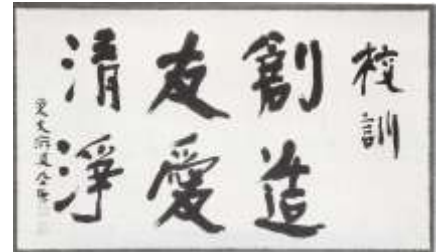 校訓
創造
友愛
清淨